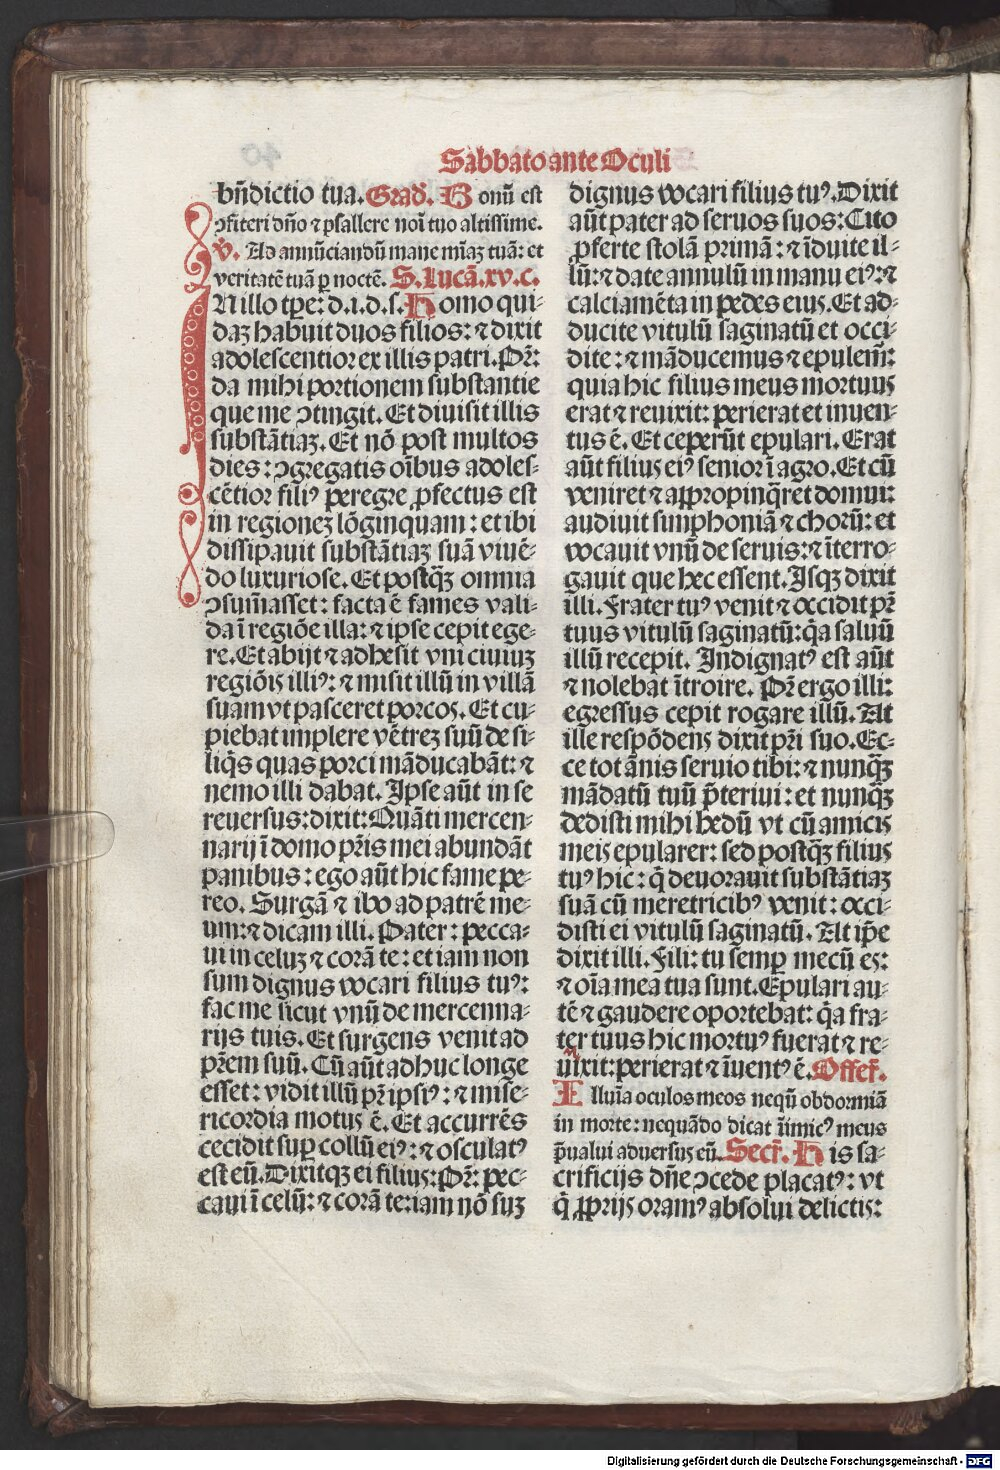 Sabbato ante Oculi
bñdictio tua. Grad̃. Bonũ est
ꝯfiteri dño ⁊ psallere noĩ tuo altissime.
v̾. Ad annũciandũ mane mĩaꝫ tuã: et
veritatẽ tuã ꝑ noctẽ. S. Lucã. xv. c.
IN illo tꝑe: d. i. d. s. Homo qui-
daꝫ habuit duos filios: ⁊ dixit
adolescentior ex illis patri. Pr̃:
da mihi portionem substantie
que me ꝯtingit. Et diuisit illis
substãtiaꝫ. Et nõ post multos
dies: ꝯgregatis oĩbus adoles-
cẽtior filiꝰ peregre ꝓfectus est
in regioneꝫ lõginquam: et ibi
dissipauit substãtiaꝫ suã viuẽ-
do luxuriose. Et postq̃ꝫ omnia
ꝯsum̃asset: facta ẽ fames vali-
da ĩ regiõe illa: ⁊ ipse cepit ege-
re. Et abijt ⁊ adhesit vni ciuiuꝫ
regiõis illiꝰ: ⁊ misit illũ in villã
suam vt pasceret porcos. Et cu-
piebat implere vẽtreꝫ suũ de si-
liq̃s quas porci mãducabãt: ⁊
nemo illi dabat. Ipse aũt in se
reuersus: dixit: Quãti mercen-
narij ĩ domo pr̃is mei abundãt
panibus: ego aũt hic fame pe-
reo. Surgã ⁊ ibo ad patrẽ me-
um: ⁊ dicam illi. Pater: pecca-
ui in celuꝫ ⁊ corã te: et iam non
sum dignus vocari filius tuꝰ:
fac me sicut vnũ de mercenna-
rijs tuis. Et surgens venit ad
pr̃em suũ. Cũ aũt adhuc longe
esset: vidit illũ pr̃ ipsiꝰ: ⁊ mise-
ricordia motus ẽ. Et accurrẽs
cecidit suꝑ collũ eiꝰ: ⁊ osculatꝰ
est eũ. Dixitqꝫ ei filius: Pr̃: pec-
caui ĩ celũ: ⁊ corã te: iam nõ suꝫ
dignus vocari filius tuꝰ. Dixit
aũt pater ad seruos suos: Cito
ꝓferte stolã primã: ⁊ ĩduite il-
lũ: ⁊ date annulũ in manu eiꝰ: ⁊
calciamẽta in pedes eius. Et ad-
ducite vitulũ saginatũ et occi-
dite: ⁊ mãducemus ⁊ epulem̃:
quia hic filius meus mortuus
erat ⁊ reuixit: perierat et inuen-
tus ẽ. Et ceperũt epulari. Erat
aũt filius eiꝰ senior ĩ agro. Et cũ
veniret ⁊ aꝓpropinq̃ret domui:
audiuit simphoniã ⁊ chorũ: et
vocauit vnũ de seruis: ⁊ ĩterro-
gauit que hec essent. Isqꝫ dixit
illi. Frater tuꝰ venit ⁊ occidit pr̃
tuus vitulũ saginatũ: q̃a saluũ
illũ recepit. Indignatꝰ est aũt
⁊ nolebat ĩtroire. Pr̃ ergo illi:
egressus cepit rogare illũ. At
ille respõdens dixit pr̃i suo. Ec-
ce tot ãnis seruio tibi: ⁊ nunq̃ꝫ
mãdatũ tuũ p̃teriui: et nunq̃ꝫ
dedisti mihi hedũ vt cũ amicis
meis epularer: sed postq̃ꝫ filius
tuꝰ hic: q̃ deuorauit substãtiaꝫ
suã cũ meretricibꝰ venit: occi-
disti ei vitulũ saginatũ. At ip̃e
dixit illi. Fili: tu semꝑ mecũ es:
⁊ oĩa mea tua sunt. Epulari au-
tẽ ⁊ gaudere oportebat: q̃a fra-
ter tuus hic mortuꝰ fuerat ⁊ re-
uixit: perierat ⁊ ĩuentꝰ ẽ. Offer̃.
Illuĩa oculos meos nequñ obdormiã
in morte: nequãdo dicat ĩimicꝰ meus
p̃ualui aduersus eũ. Secr̃. His sa-
crificijs dñe ꝯcede placatꝰ: vt
q̃ ꝓprijs oramꝰ absolui delictis:
Digitalisierung gefördert durch die Deutsche Forschungsgemeinschaft - DFG